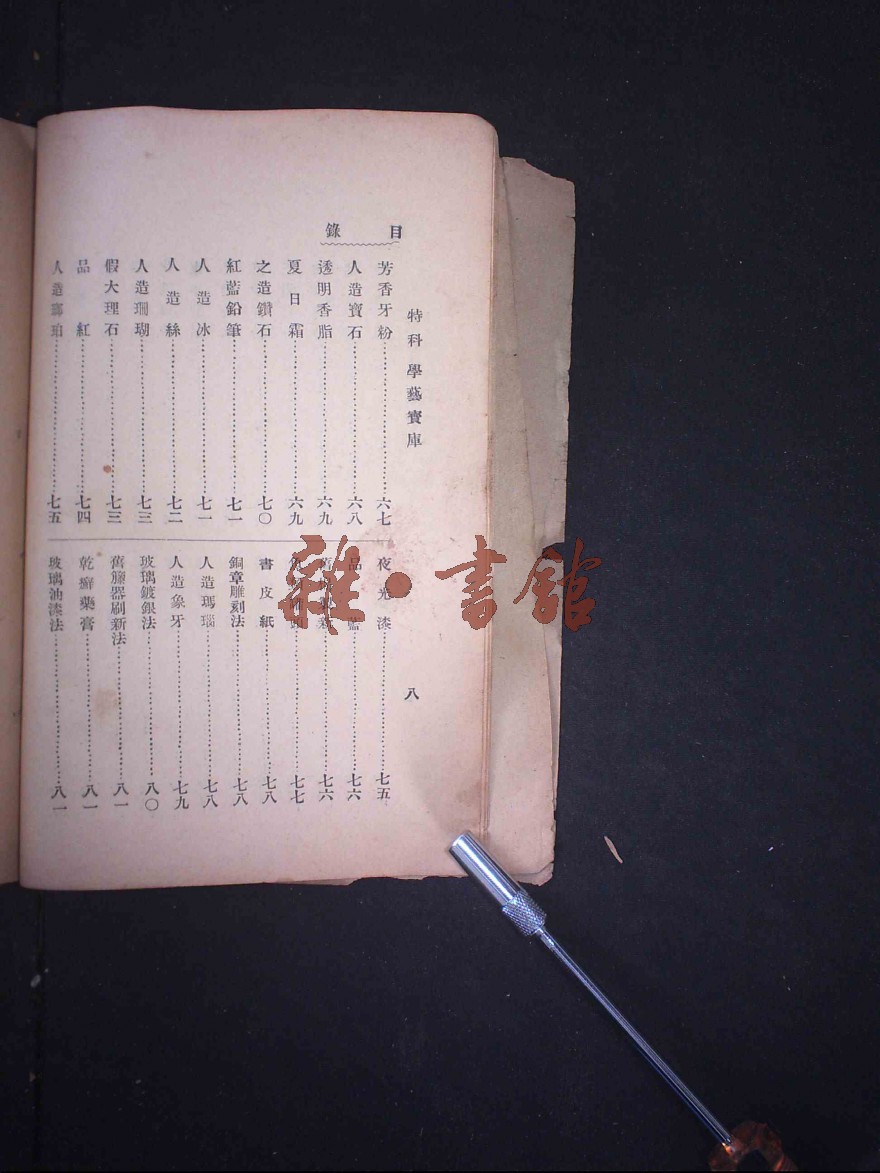 特科學藝寶庫
八
目錄
芳香牙粉 六七
人造寶石 六八
透明香脂 六九
夏日霜 六九
之造鑽石 七〇
紅藍鉛筆 七一
人造冰 七一
人造絲 七二
人造珊瑚 七三
假大理石 七三
品紅 七四
人造琥珀 七五
夜光漆 七五
品藍 七六
七六
七七
書皮紙 七八
銅章雕刻法 七八
人造瑪瑙 七八
人造象牙 七九
玻璃鍍銀法 八〇
舊籐器刷新法 八一
乾癬藥膏 八一
玻璃油漆法 八一
雜·書館